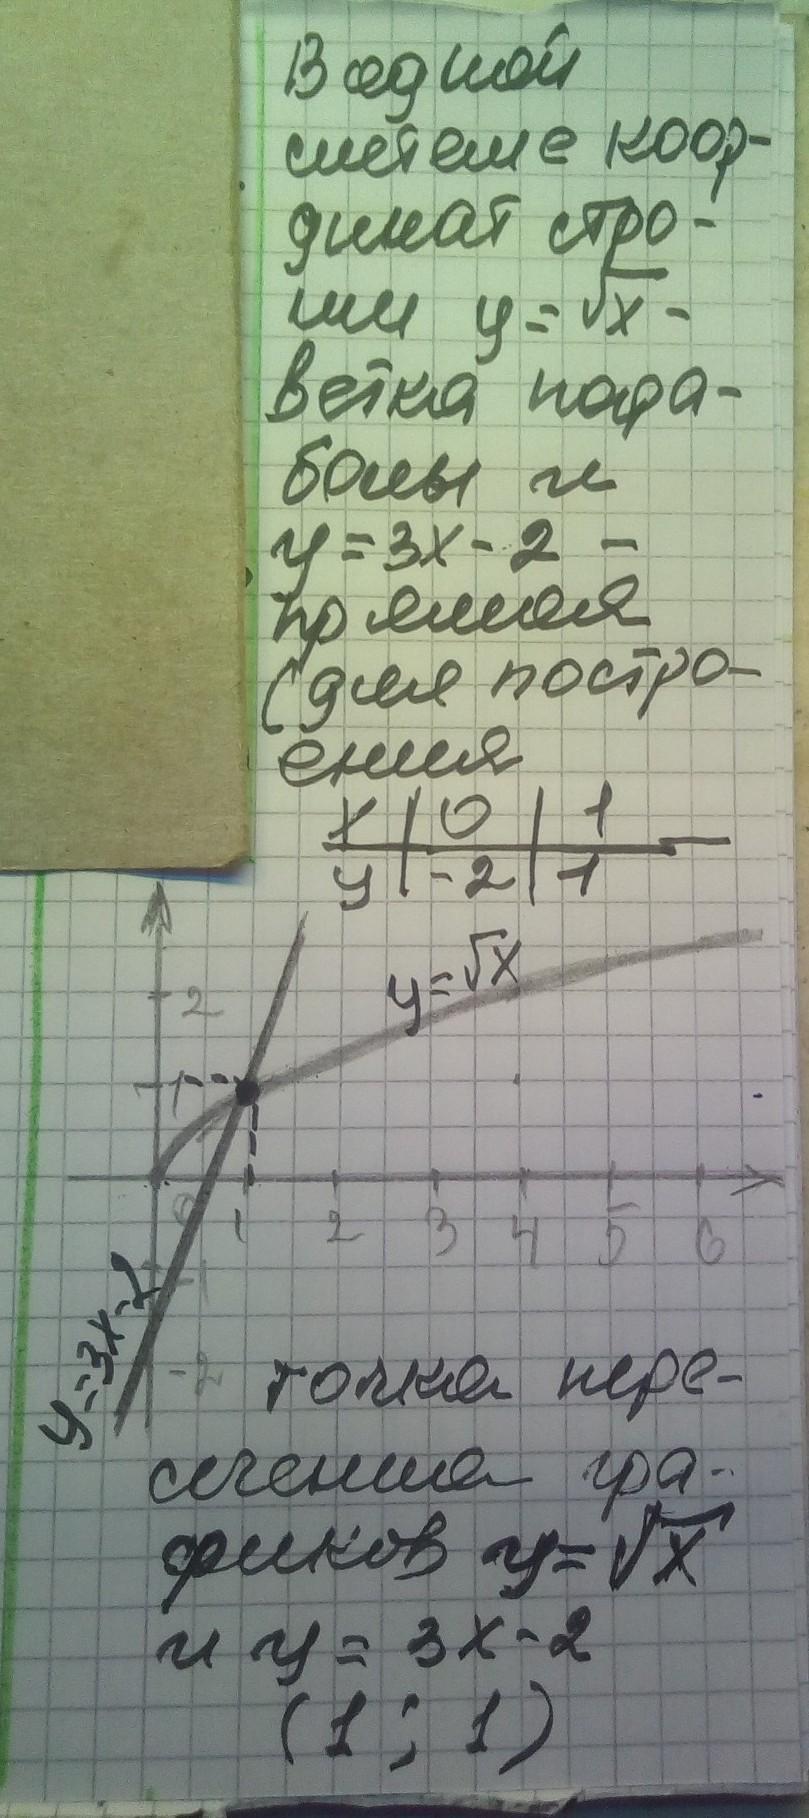 В одной
системе коор-
динат стро-
им y = √x -
ветка пара-
болы и
y = 3x - 2 -
прямая
(для постро-
ения
x | 0 | 1
y | -2 | 1
y = √x
2
1
0 1 2 3 4 5 6
-1
y = 3x - 2
-2
точка пере-
сечения гра-
фиков y = √x
и y = 3x - 2
(1 ; 1)